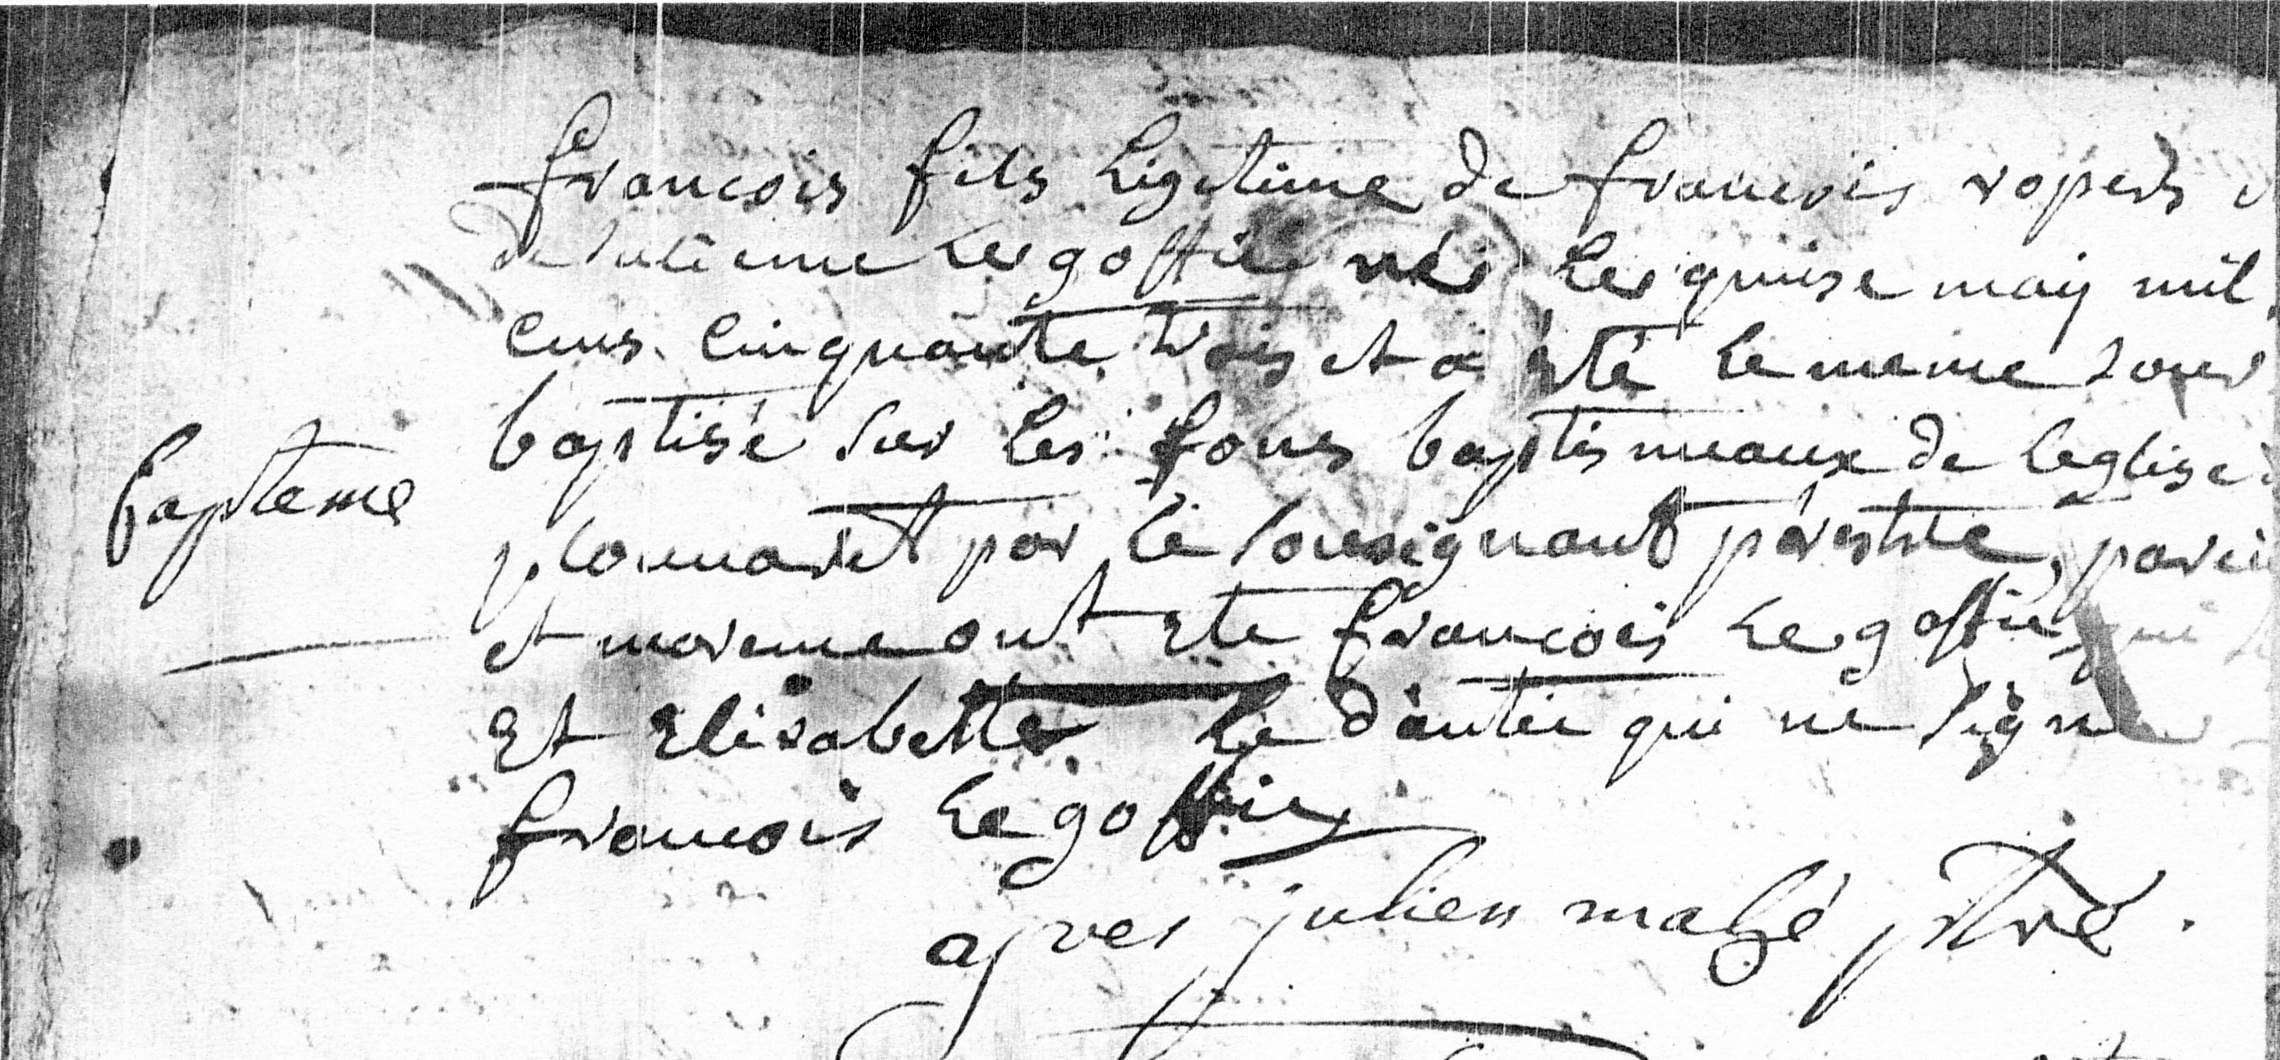 francois fils Legetime de francois ropers
de Julienne Le goffic née Le quinse may mil
cens cinquante trois et a été le meme Jour
baptisé sur les fons baptismeaux de leglise
baptéme
plounaret par le sousignant prestre, parein
et mareine ont ete francois Le goffic
et Elisabette le dantec qui ne signe
francois Le goffic
apres julien mazé ptre.